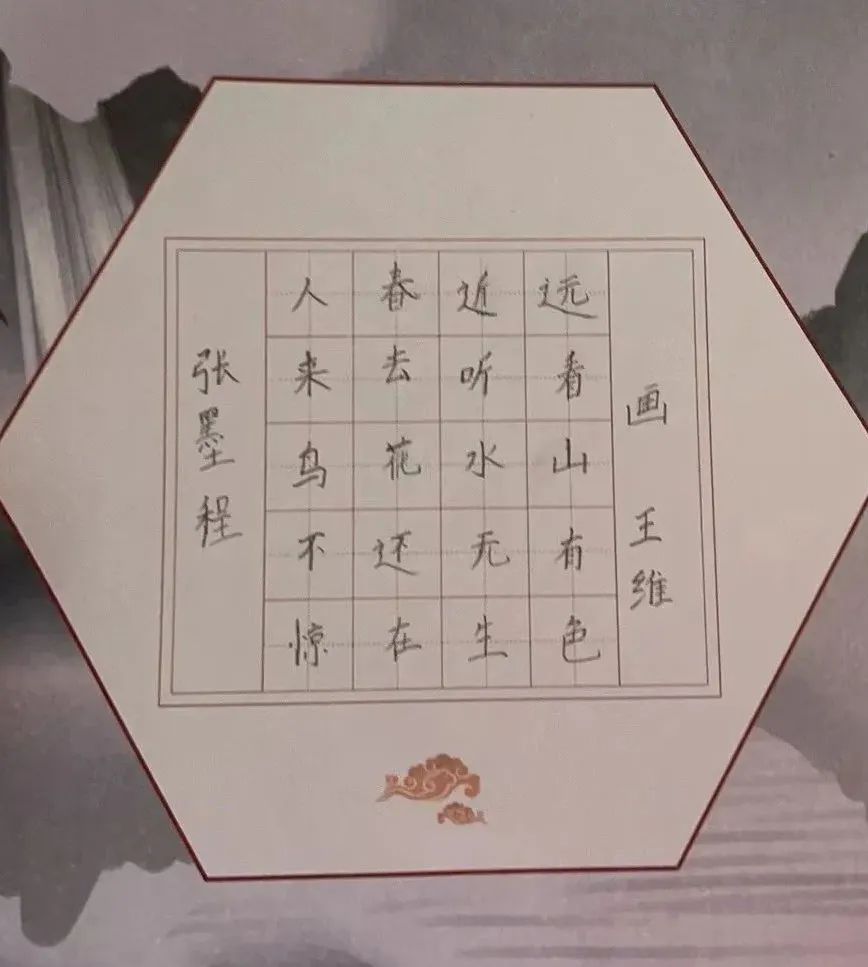 画 王维
远看山有色
近听水无生
春去花还在
人来鸟不惊
张墨程